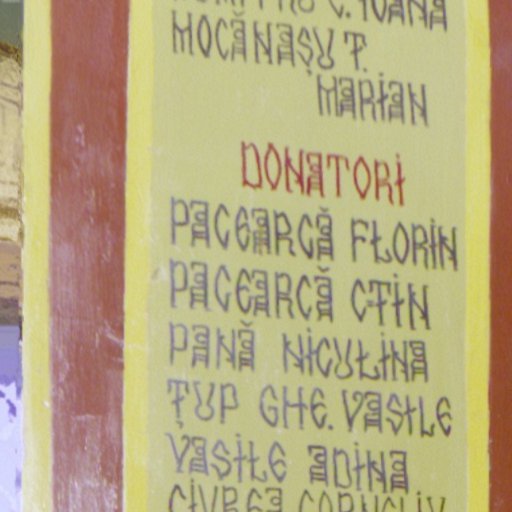 V. IOANA
MOCĂNAȘU T.
MARIAN
DONATORI
PACEARCĂ FLORIN
PACEARCĂ C-TIN
PANĂ NICULINA
ȚUP GHE. VASILE
VASILE ADINA
CORNELIU